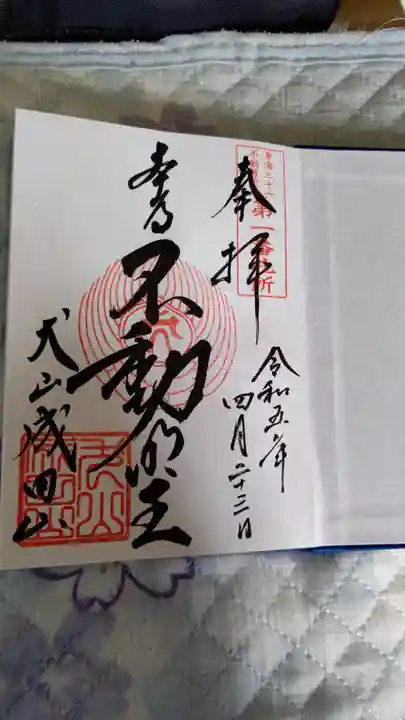 東海三十六
不動尊
第一番札所
奉拝
令和五年
四月二十三日
本尊
不動明王
犬山成田山